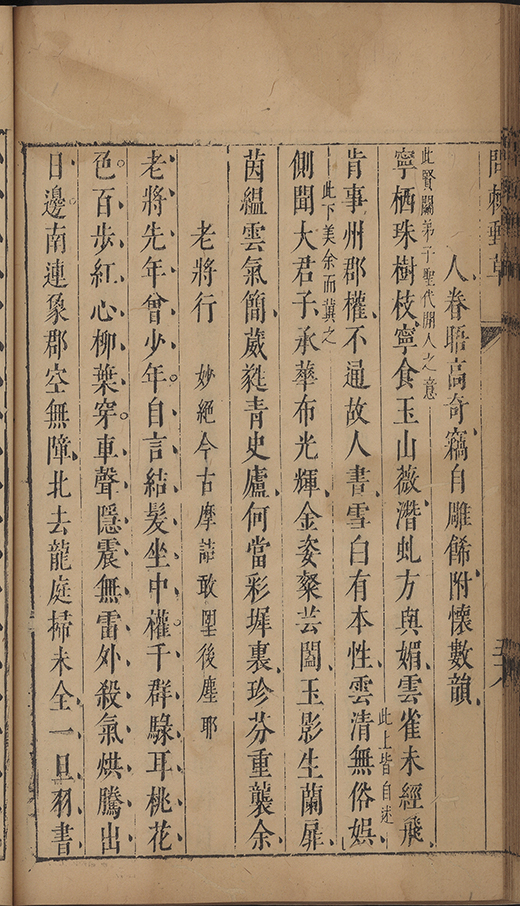 問棘郵草
人眷晤高奇竊自雕餙附懷數韻
此賢關弟子聖代閒人之意
寧栖珠樹枝寧食玉山薇潛虬方與媚雲雀未經飛
此上皆自述
肯事州郡權不通故人書雪白有本性雲清無俗娛
此下美余而冀之
側聞大君子承華布光輝金姿粲芸閣玉影生蘭扉
茵縕雲氣簡葳蕤青史廬何當彩墀裏珍芬重襲余
老將行 妙絕今古摩詰敢望後塵耶
老將先年曾少年。自言結髮坐中權。千群騄耳桃花
色。百步紅心柳葉穿。車聲隱震無雷外殺氣烘騰出
日邊南連象郡空無障北去龍庭掃未全一旦羽書